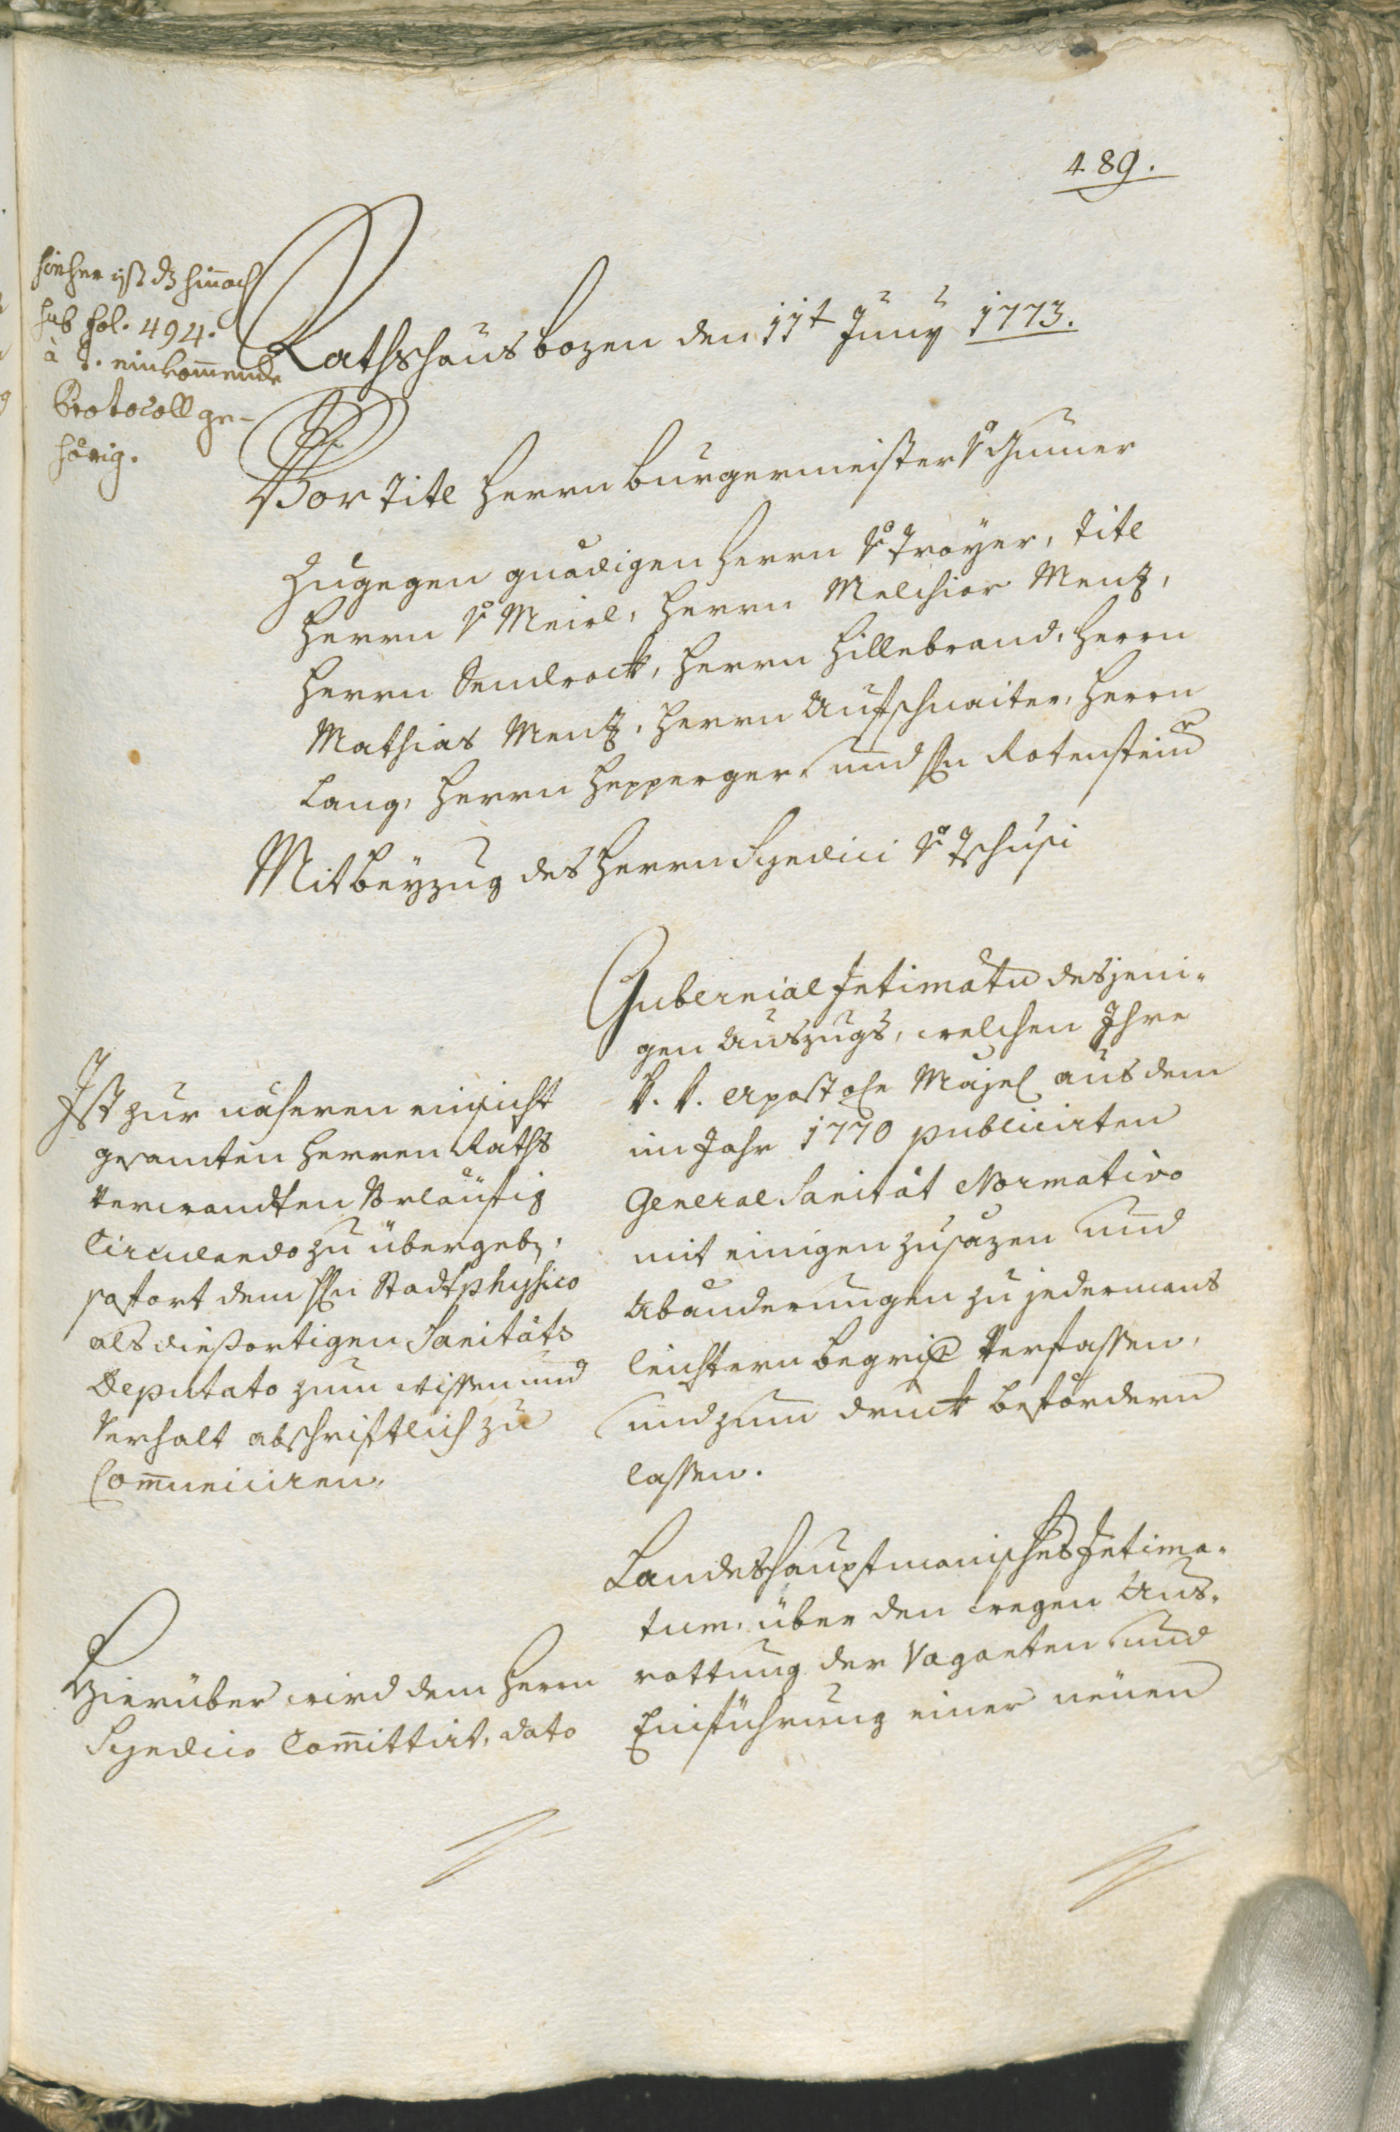 489.
hieher ist dz hinnach
sub fol. 494.
à t. einkom̅ende
Protocoll ge-
hörig.
Rathshaus bozen den 11t Juny 1773.
Vor Titl herrn burgermeister v Gumer
Zugegen gnädigen herrn v Troyer, Titl
herrn v Meirl, herrn Melchior Menz,
herrn Sendrock, herrn Hillebrand, herrn
Mathias Menz, herrn Aufschnaiter, herrn
Lang, herrn Hepperger, und hn Rotenstein
Mit beyzug des herrn Syndici v Tschusi
Gubernial Intimatum desjeni-
gen Auszugs, welchen Ihre
k. k. Apostole Majest aus dem
im Jahr 1770 publicirten
General Sanität Normativo
mit einigen zusäzen und
Abänderungen zu jedermans
leichtern begriff verfassen,
und zum druck befördern
lassen.
Ist zur näheren einsicht
gesamten herren Raths
verwandten vorläufig
Circulando zu übergeben,
sofort dem hn Stadtphysico
als diesortigen Sanitäts
Deputato zum wissen und
verhalt abschriftlich zu
Com̅uniciren.
Landeshauptmanisches Intima-
tum, über den wegen Aus-
rottung der Vaganten und
Einführung einer neuen
Hierüber wird dem herrn
Syndico Com̅ittirt, dato